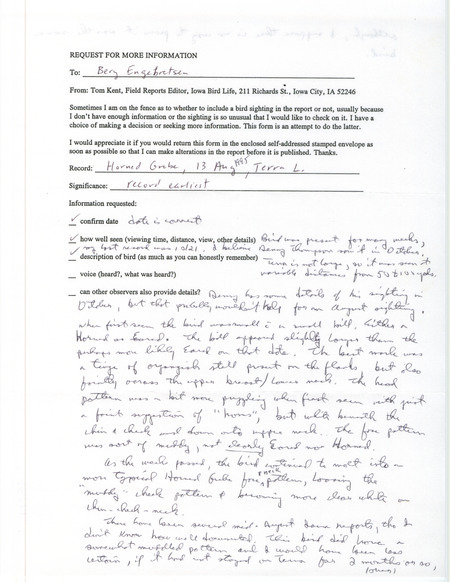 REQUEST FOR MORE INFORMATION
To: Berg Engebretsen
From: Tom Kent, Field Reports Editor, Iowa Bird Life, 211 Richards St., Iowa City, IA 52246
Sometimes I am on the fence as to whether to include a bird sighting in the report or not, usually because
I don't have enough information or the sighting is so unusual that I would like to check on it. I have a
choice of making a decision or seeking more information. This form is an attempt to do the latter.
I would appreciate it if you would return this form in the enclosed self-addressed stamped envelope as
soon as possible so that I can make alterations in the report before it is published. Thanks.
Record: Horned Grebe, 13 Aug 1995, Terra L.
Significance: record earliest
Information requested:
✓ confirm date date is correct
✓ how well seen (viewing time, distance, view, other details) Bird was present for many weeks,
my last record was 10/21. I believe Denny Thompson saw it in October.
✓ description of bird (as much as you can honestly remember) Terra is not large, so it was seen at
voice (heard?, what was heard?) variable distances from 50 to 100 yds
can other observers also provide details? Denny has some details of his sighting in
October, but that probably wouldn't help for an August sighting.
When first seen the bird was small with a small bill, either a
Horned or Eared. The bill appeared slightly larger than the
perhaps more likely Eared on that date. The best mark was
a tinge of orangish still present on the flanks, but also
faintly across the upper breast/lower neck. The head
pattern was a bit more puzzling when first seen with just
a faint suggestion of "horns", but white beneath the
chin & cheek and down onto upper neck. The face pattern
was sort of muddy, not clearly Eared nor Horned.
As the weeks passed, the bird continued to molt into a
more typical Horned Grebe face & neck pattern, loosing the
"muddy" cheek pattern & becoming more clear white on
chin-cheek-neck.
There have been several mid-August Iowa reports, tho I
don't know how well documented. This bird did have a
somewhat muddled pattern and I would have been less
certain, if it had not stayed on Terra for 2 months or so,